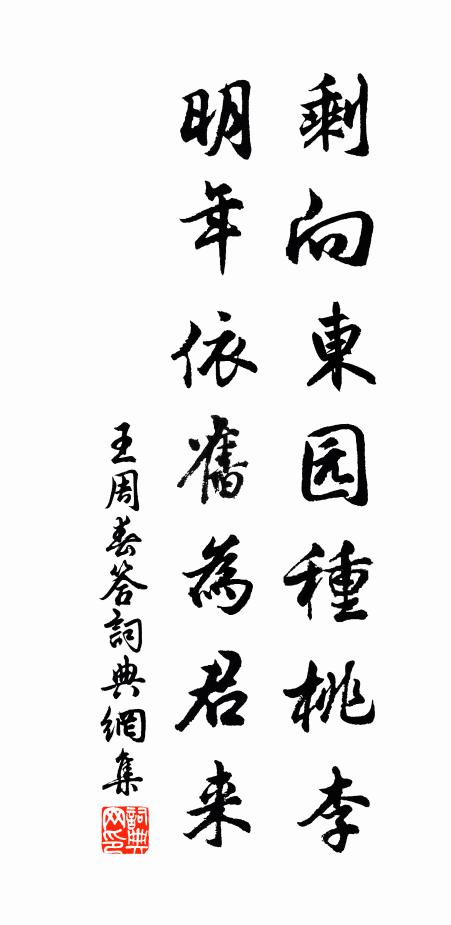 剩向東园種桃李
明年依舊為君来
王周春答詞典網集
詞典网印